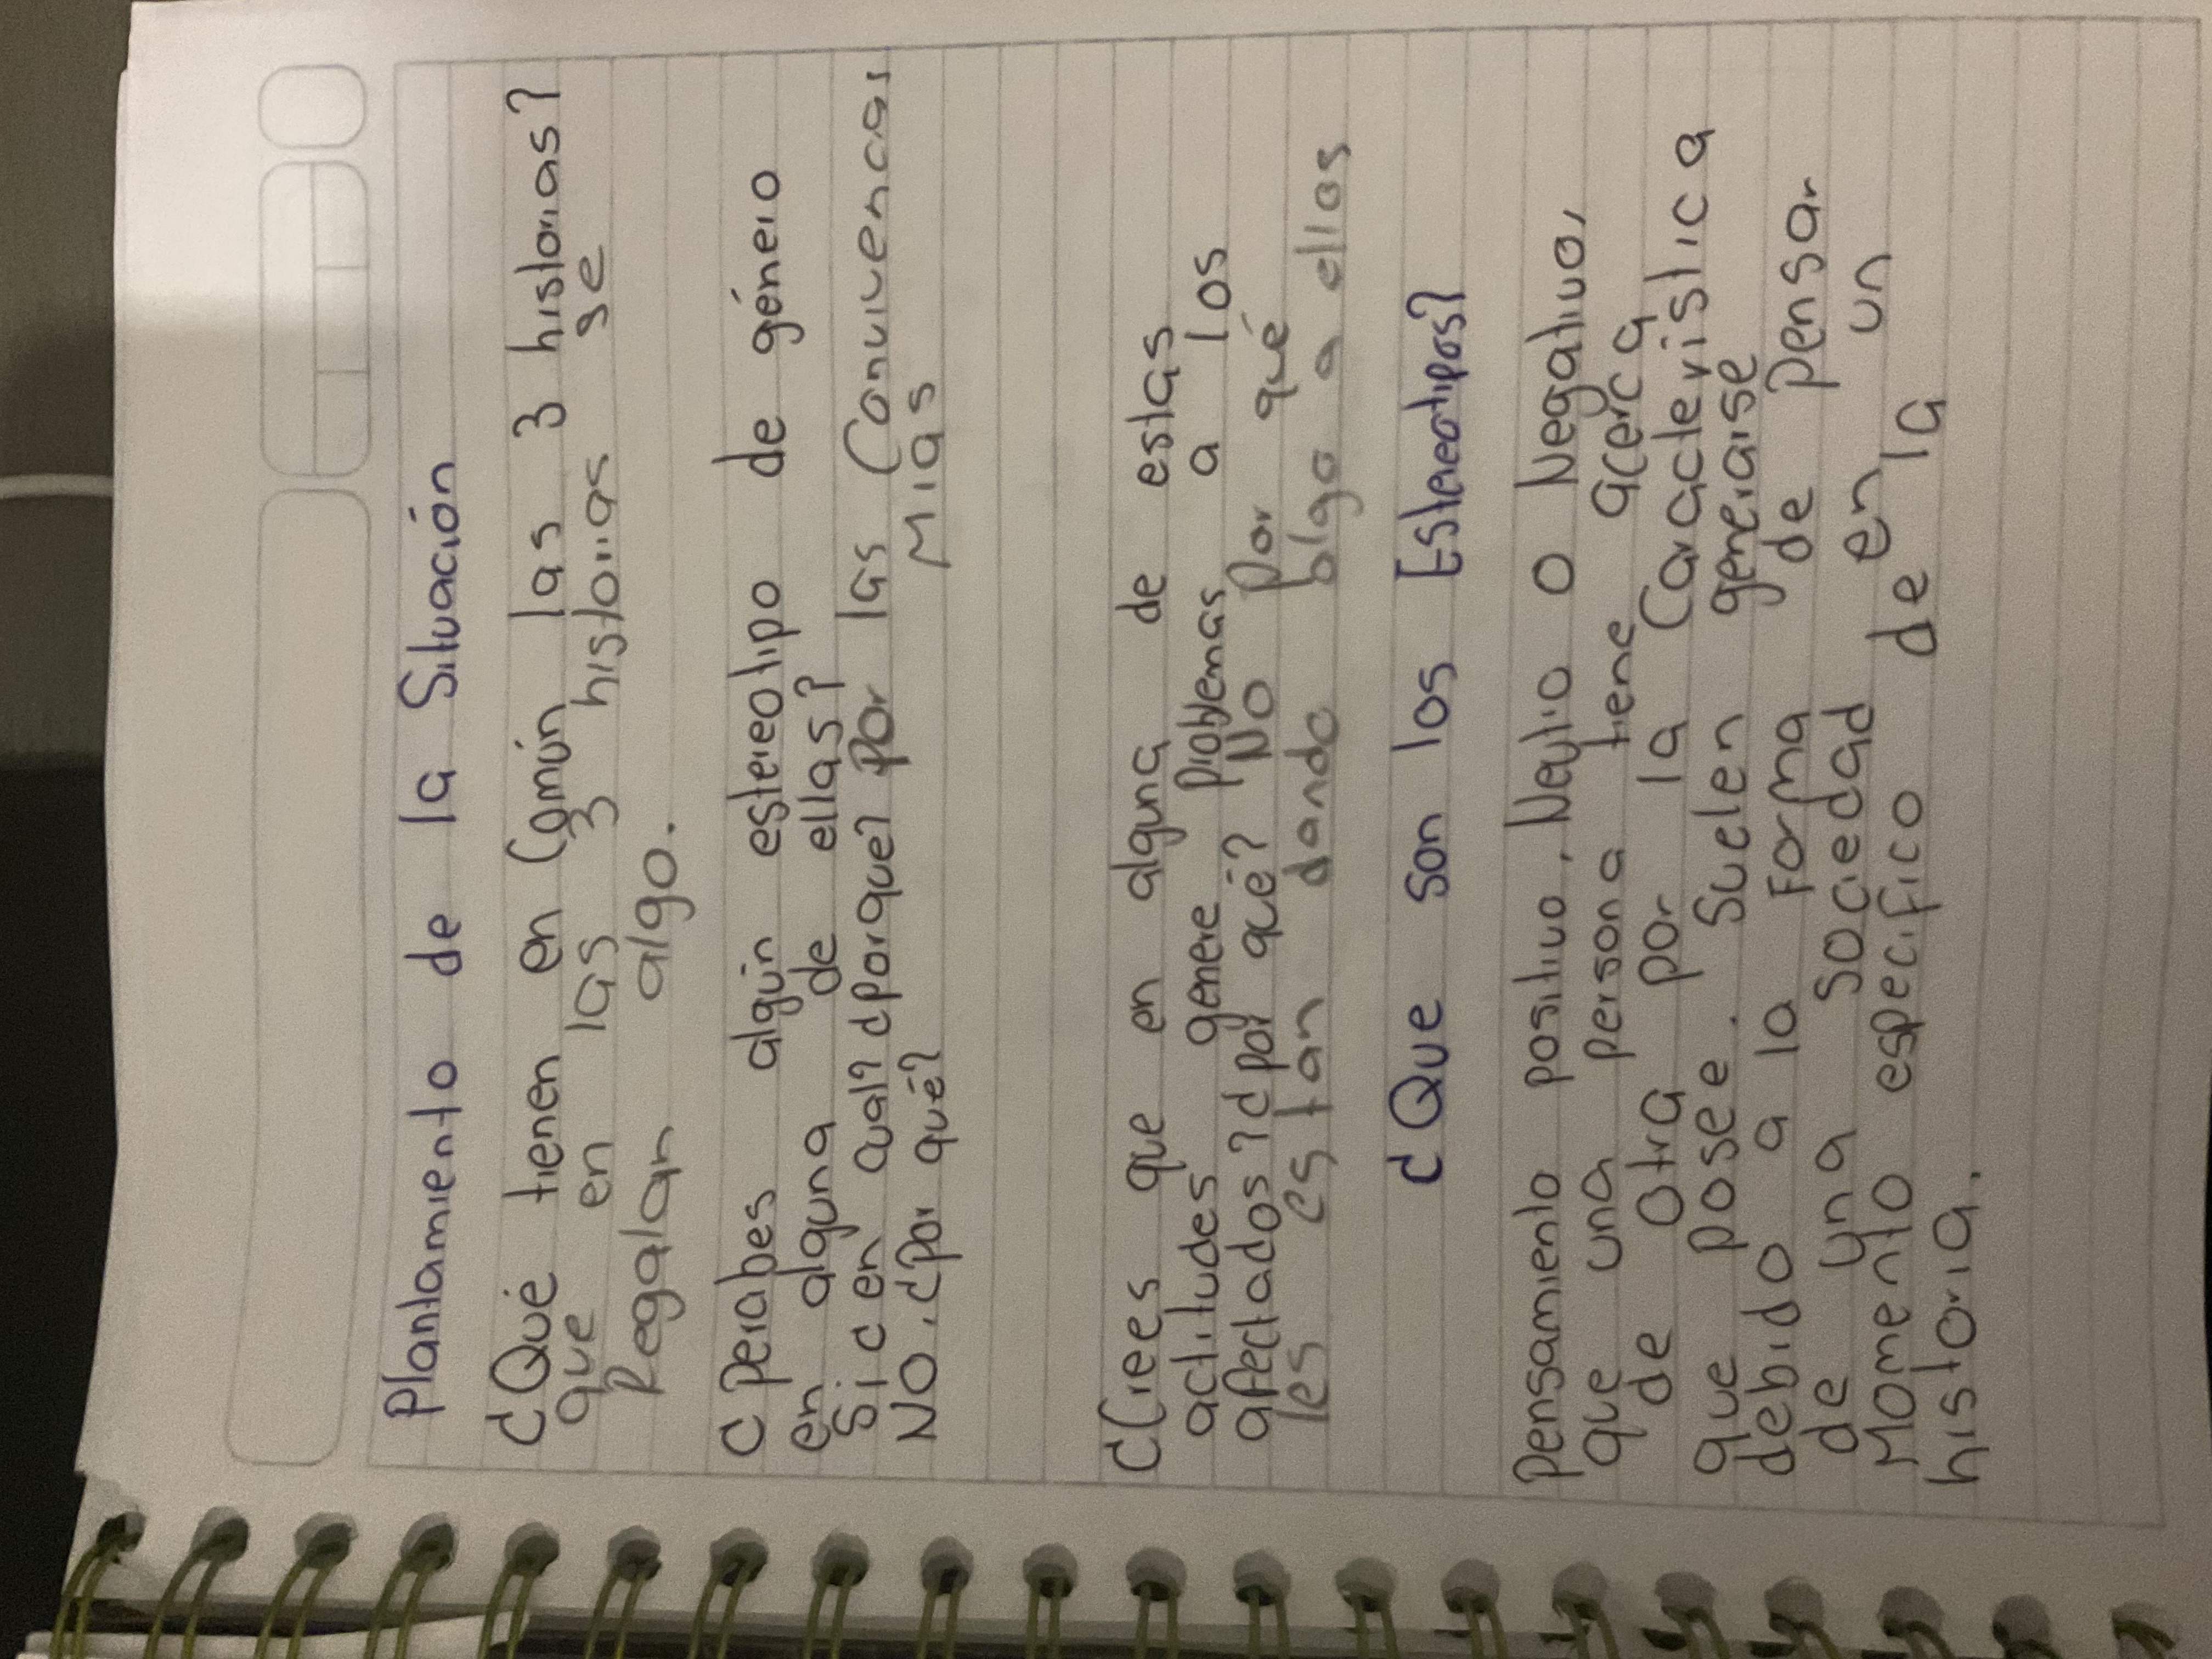 Plantamiento de la Situación
¿Qué tienen en Común las 3 historias?
que en las 3 historias se
Regalan algo.
¿Perabes algún estereotipo de género
en alguna de ellas?
Si ¿en cual? ¿Porque? Por las Convivencias
No. ¿Por qué? Mias
¿Crees que en alguna de estas
actitudes genere problemas a los
afectados? ¿por qué? No Por qué
les es tan dando algo a ellos
¿Que son los Estereotipos?
Pensamiento positivo, Neutro o Negativo,
que una persona tiene acerca
de otra por la Característica
que posee. Suelen generarse
debido a la Forma de Pensar
de una sociedad en un
Momento específico de la
historia.